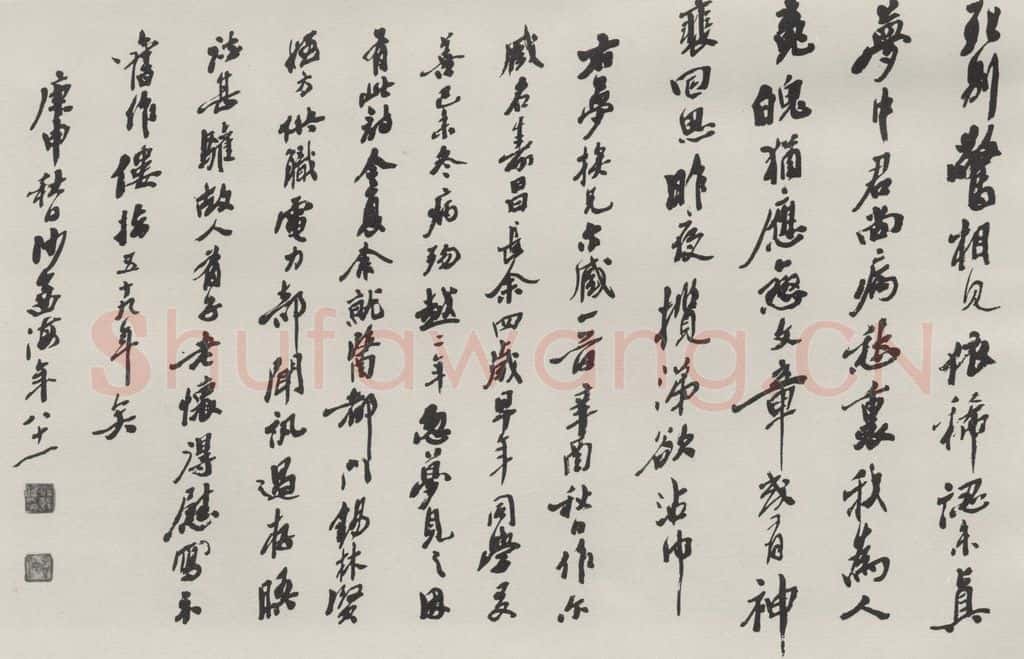 死別驚相見依稀認未真
夢中君尚病愁裏我為人
魄猶應戀文章或有神
裴回思昨夜攬涕欲沾巾
右夢兄尔臧一首辛酉秋日作尔
臧名壽昌長余四歲早年同學友
善己未冬病歾越二年忽夢見之因
有此詩今夏余就醫都門錫林賢
姪方供職電力部聞訊過存晤
談甚驩故人有子老懷得慰寫示
舊作僂指五十九年矣
庚申秋日沙孟海年八十一
Shufawang.CN